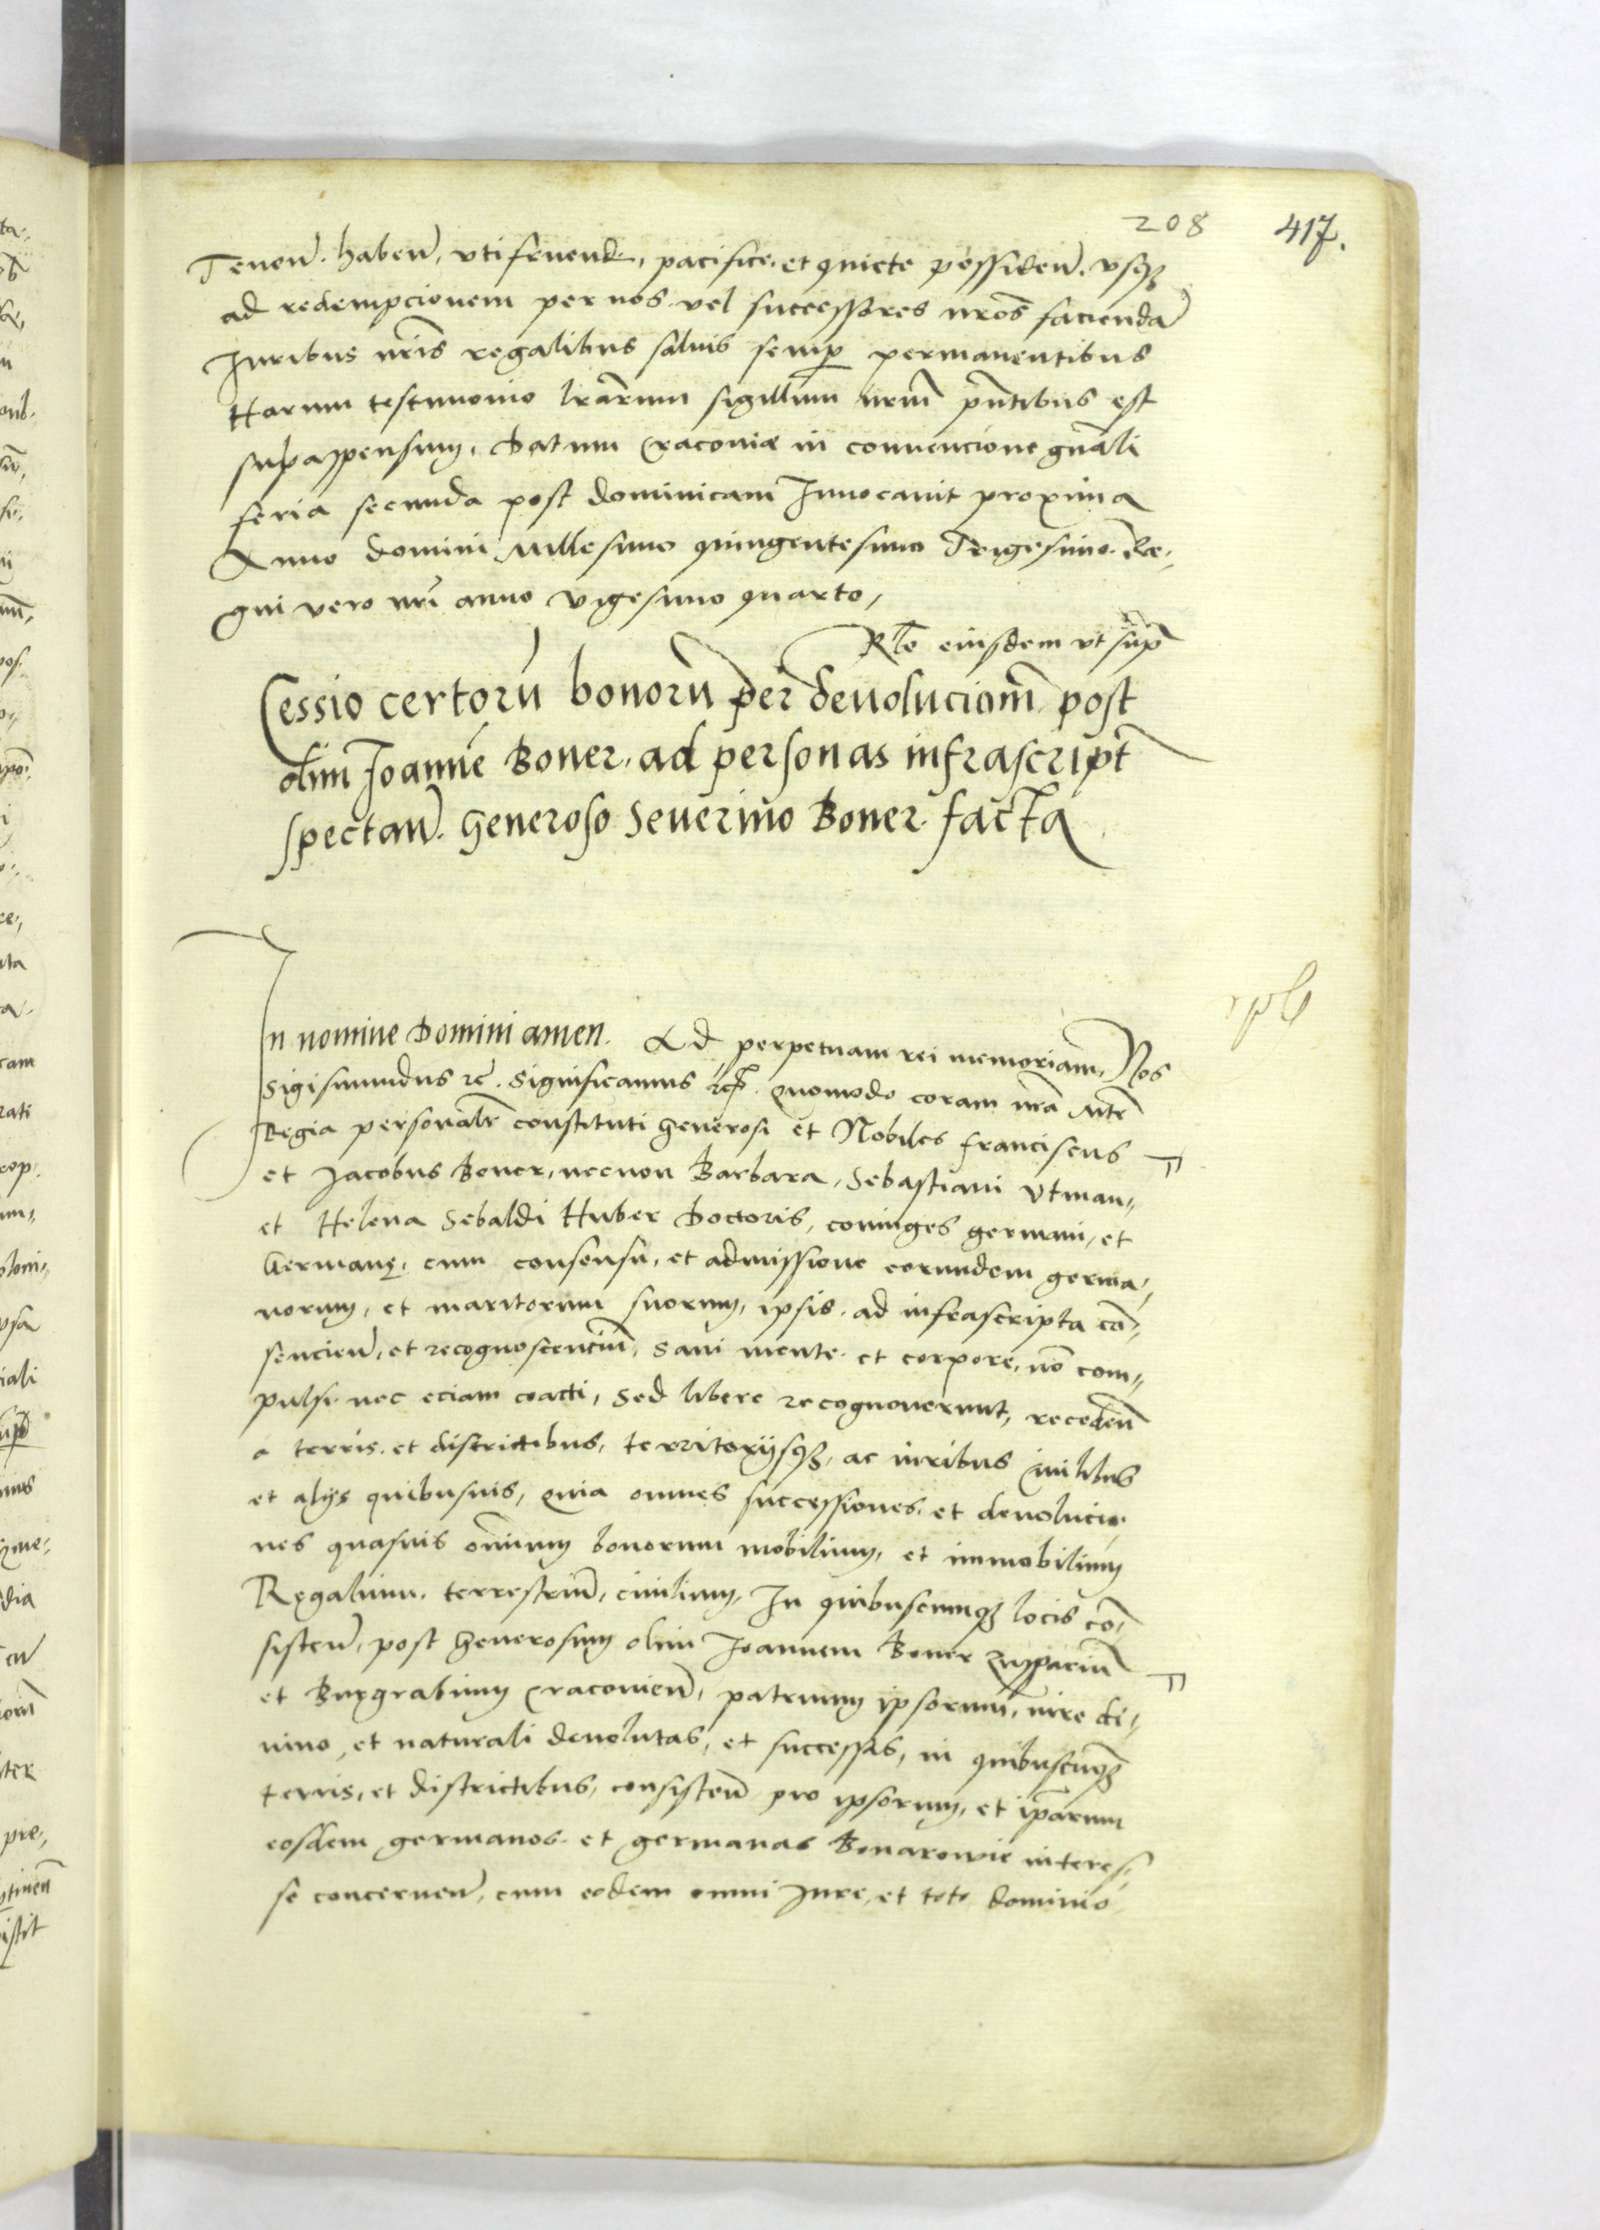 208 417.
Tenen̄. haben̄, utifruend., pacifice. et quiete possiden̄. vsq3
ad redempcionem per nos vel successores nr̄os faciendā
Juribus nr̄is regalibus saluis semp̱ permanentibus
Harum testimonio lr̄arum sigillum nrm̄ pn̄tibus est
subappensum. Datum Cracoviæ in convencione gn̄ali
feria secunda post dominicam Invocavit proxima
Anno domini Millesimo quingentesimo Trigesimo. Re-
gni vero nrī anno vigesimo quarto,
Rl̄o eiusdem vt sup̄
Cessio certorū bonorū per devolucionē post
olim Joannē Boner, ad personas infrascript̄
spectan̄. Generoso Severino Boner facta
In nomine Domini amen. Ad perpetuam rei memoriam, Nos
Sigismundus rc̄. Significamus quomodo coram nrā Mt̄e
Regia personalr̄ constituti Generosi et Nobiles Franciscus
et Jacobus Boner, necnon Barbara, Sebastiani Vtman,,
et Helena Sebaldi Huber Doctoris, coniuges germani, et
Germanę, cum consensu, et admissione eorundem germa,
norum, et maritorum suorum, ipsis. ad infrascripta cō,
sencien̄, et recognoscentiū, Sani mente et corpore, nō com,,
pulsi nec eciam coacti, Sed libere recognoverunt, receden̄
a terris. et districtibus, territoriisq3, ac iuribus civilibus
et alys quibusvis, Quia omnes successiones. et devolucio
nes quasvis om̄ium bonorum mobilium, et immobilium
Regalium, terrestriū, civilium, In quibuscunq3 locis cō,
sisten̄, post Generosum olim Joannem Boner Zuppariū
et Burgrabium Cracovien̄, patruum ipsorum, iure di,
uino, et naturali devolutas, et successas, in quibuscūq3
terris, et districtibus, consisten̄ pro ipsorum, et ip̄arum
eosdem germanos. et germanas Bonarowie interes,
se concernen̄, cum eodem omni Jure, et toto dominio